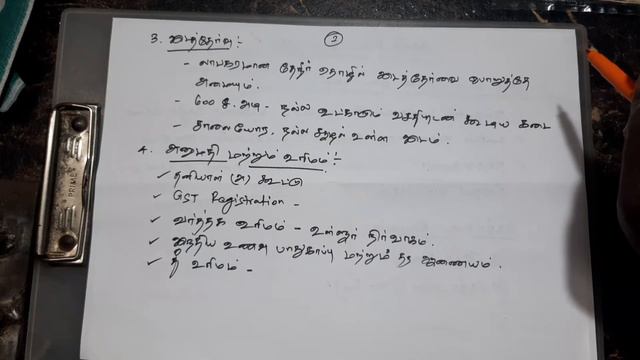 2
3. இடத்தேர்வு :-
- லாபகரமான தேநீர் தொழில் இடத்தேர்வை பொறுத்தே
அமையும்.
- 600 ச. அடி - நல்ல உட்காரும் வசதியுடன் கூடிய கடை
- சாலையோர, நல்ல சூழல் உள்ள இடம்.
4. அனுமதி மற்றும் உரிமம் :-
✓ தனியாள் (அ) கூட்டு
✓ GST Registration -
✓ வர்த்தக உரிமம் - உள்ளூர் நிர்வாகம்.
✓ இந்திய உணவு பாதுகாப்பு மற்றும் தர ஆணையம்.
✓ தீ உரிமம் -
PRIME